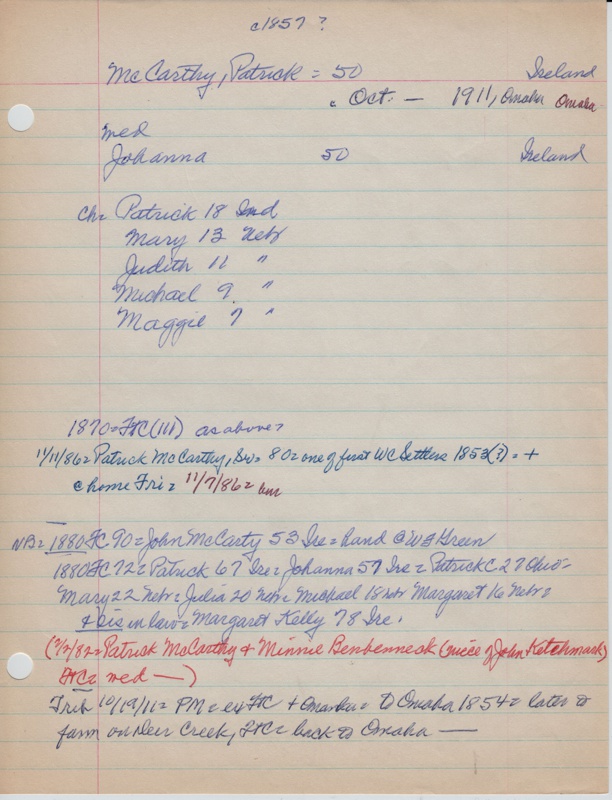 c1857 ?
McCarthy, Patrick = 50 Ireland
c Oct. — 1911, Omaha Omaha
med
Johanna 50 Ireland
ch= Patrick 18 Ind
Mary 13 Nebr
Judith 11 "
Michael 9 "
Maggie 7 "
1870= FtC (111) as above?
11/11/86= Patrick McCarthy, Sr= 80= one of first WC Settlers 1853(?) = +
@ home Fri= 11/7/86=
NB= 1880 FC 90= John McCarty 53 Ire= hand @ W Green
1880 FC 72= Patrick 67 Ire= Johanna 57 Ire= Patrick C 27 Ohio=
Mary 22 Nebr= Julia 20 Neb= Michael 18 Nebr Margaret 16 Nebr=
& sis in law= Margaret Kelly 78 Ire.
(7/2/82= Patrick McCarthy & Minnie Benbennesk (niece of John Ketchmark)
FtC= med —)
Trib 10/19/11= PM= ex FtC + Omaha= to Omaha 1854= later to
farm on Deer Creek, FtC= back to Omaha —